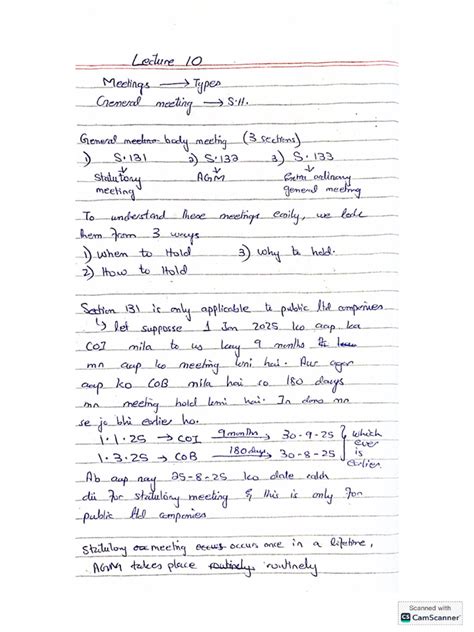 Lecture 10
Meetings → Types
General meeting → S.H.
General meetin body meeting (3 sections)
1) S.131 2) S.132 3) S.133
Statutory meeting AGM Extra ordinary general meeting
To understand these meetings easily, we look
them from 3 ways
1) When to Hold 3) Why to hold.
2) How to Hold
Section 131 is only applicable to public ltd companies
↳ let suppose 1 Jan 2025 ko aap ka
COI mila to us kay 9 months
mn aap ko meeting leni hai. Aur agar
aap ko COB mila hai to 180 days
mn meeting hold leni hai. In dono mn
se jo bhi earlier ho.
1.1.25 → COI 9 months → 30-9-25 } which
1.3.25 → COB 180 days → 30-8-25 ever is earlier
Ab aap nay 25-8-25 ko date
di for statutory meeting & this is only for
public ltd companies
Statutory meeting occurs once in a lifetime,
AGM takes place routinely
Scanned with
CS CamScanner